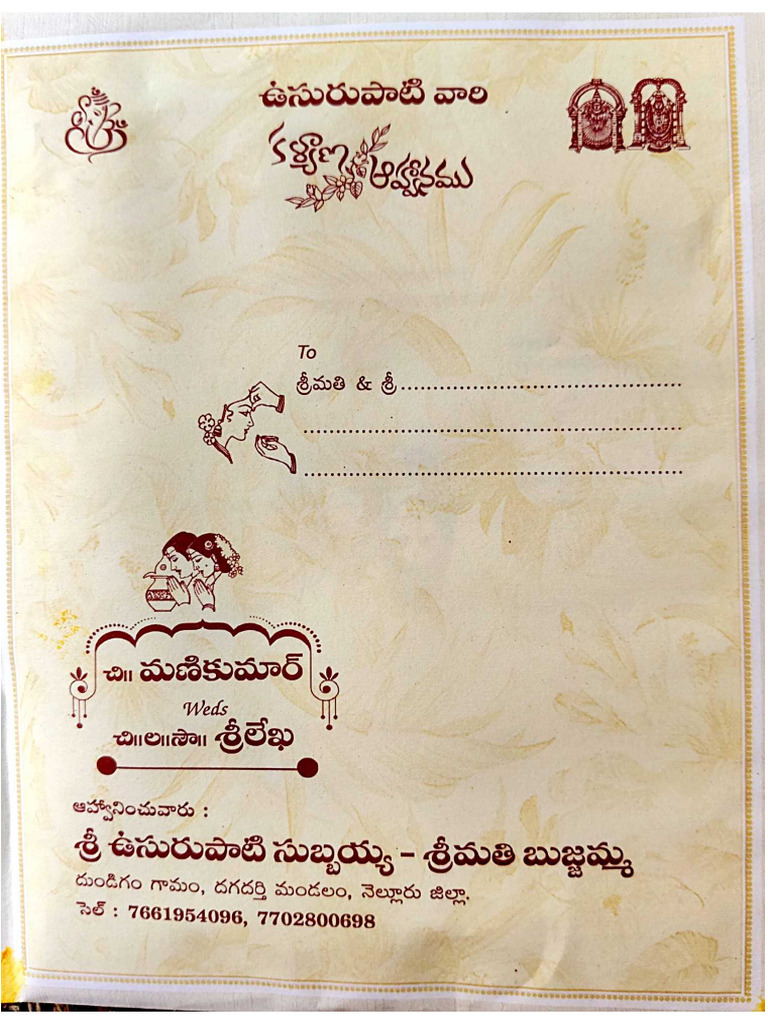 ఉసురుపాటి వారి
కళ్యాణ ఆహ్వానము
To
శ్రీమతి & శ్రీ..........................................................
..............................................................................
..............................................................................
చి॥ మణికుమార్
Weds
చి॥ల॥సౌ॥ శ్రీలేఖ
ఆహ్వానించువారు :
శ్రీ ఉసురుపాటి సుబ్బయ్య - శ్రీమతి బుజ్జమ్మ
దుండిగం గామం, దగదర్తి మండలం, నెల్లూరు జిల్లా.
సెల్ : 7661954096, 7702800698